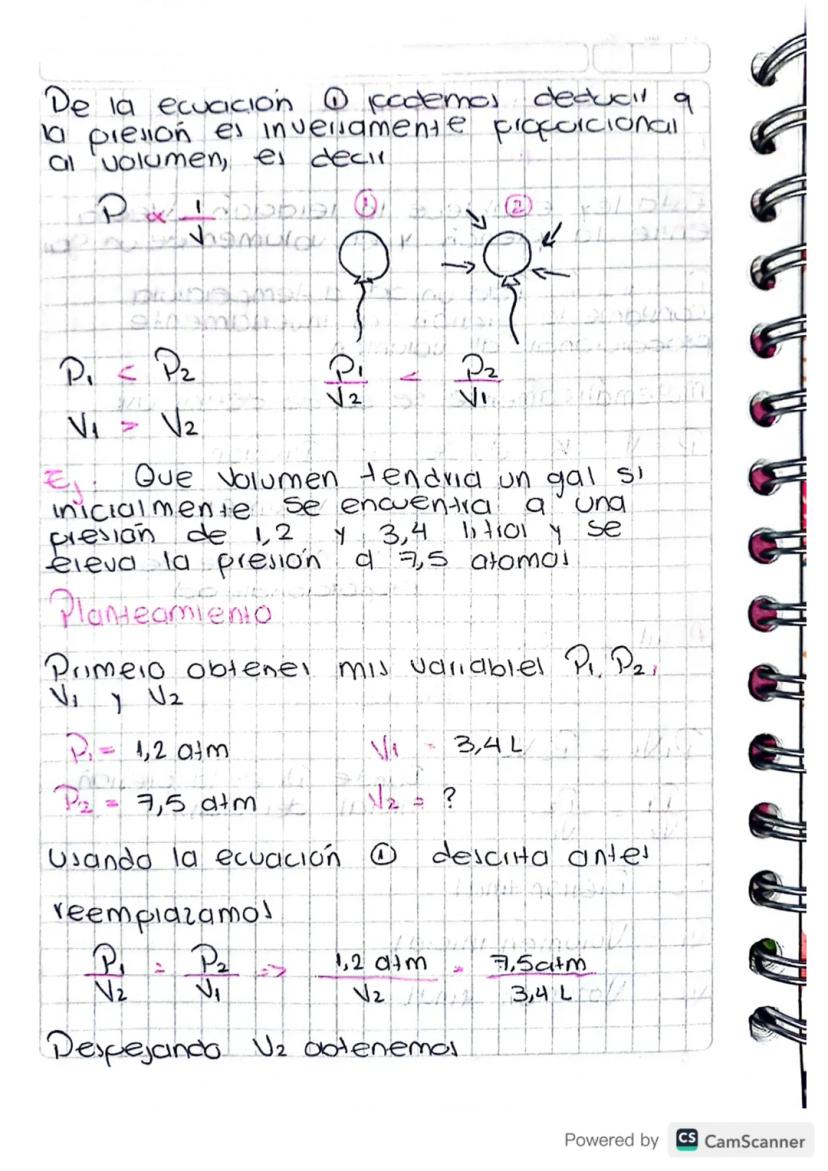 De la ecuación ① podemos deducir q
la presión es inversamente proporcional
al volumen, es decir
P ∝ 1/V
① ②
P₁ < P₂ P₁/V₂ < P₂/V₁
V₁ > V₂
Ej. Que volumen tendria un gas si
inicialmente se encuentra a una
presión de 1,2 y 3,4 litros y se
eleva la presión a 7,5 atomos
Planteamiento
Primero obtener mis variables P₁, P₂,
V₁ y V₂
P₁ = 1,2 atm V₁ = 3,4 L
P₂ = 7,5 atm V₂ = ?
Usando la ecuación ① descrita antes
reemplazamos
P₁/V₂ = P₂/V₁ => 1,2 atm/V₂ = 7,5 atm/3,4 L
Despejando V₂ obtenemos
Powered by CS CamScanner